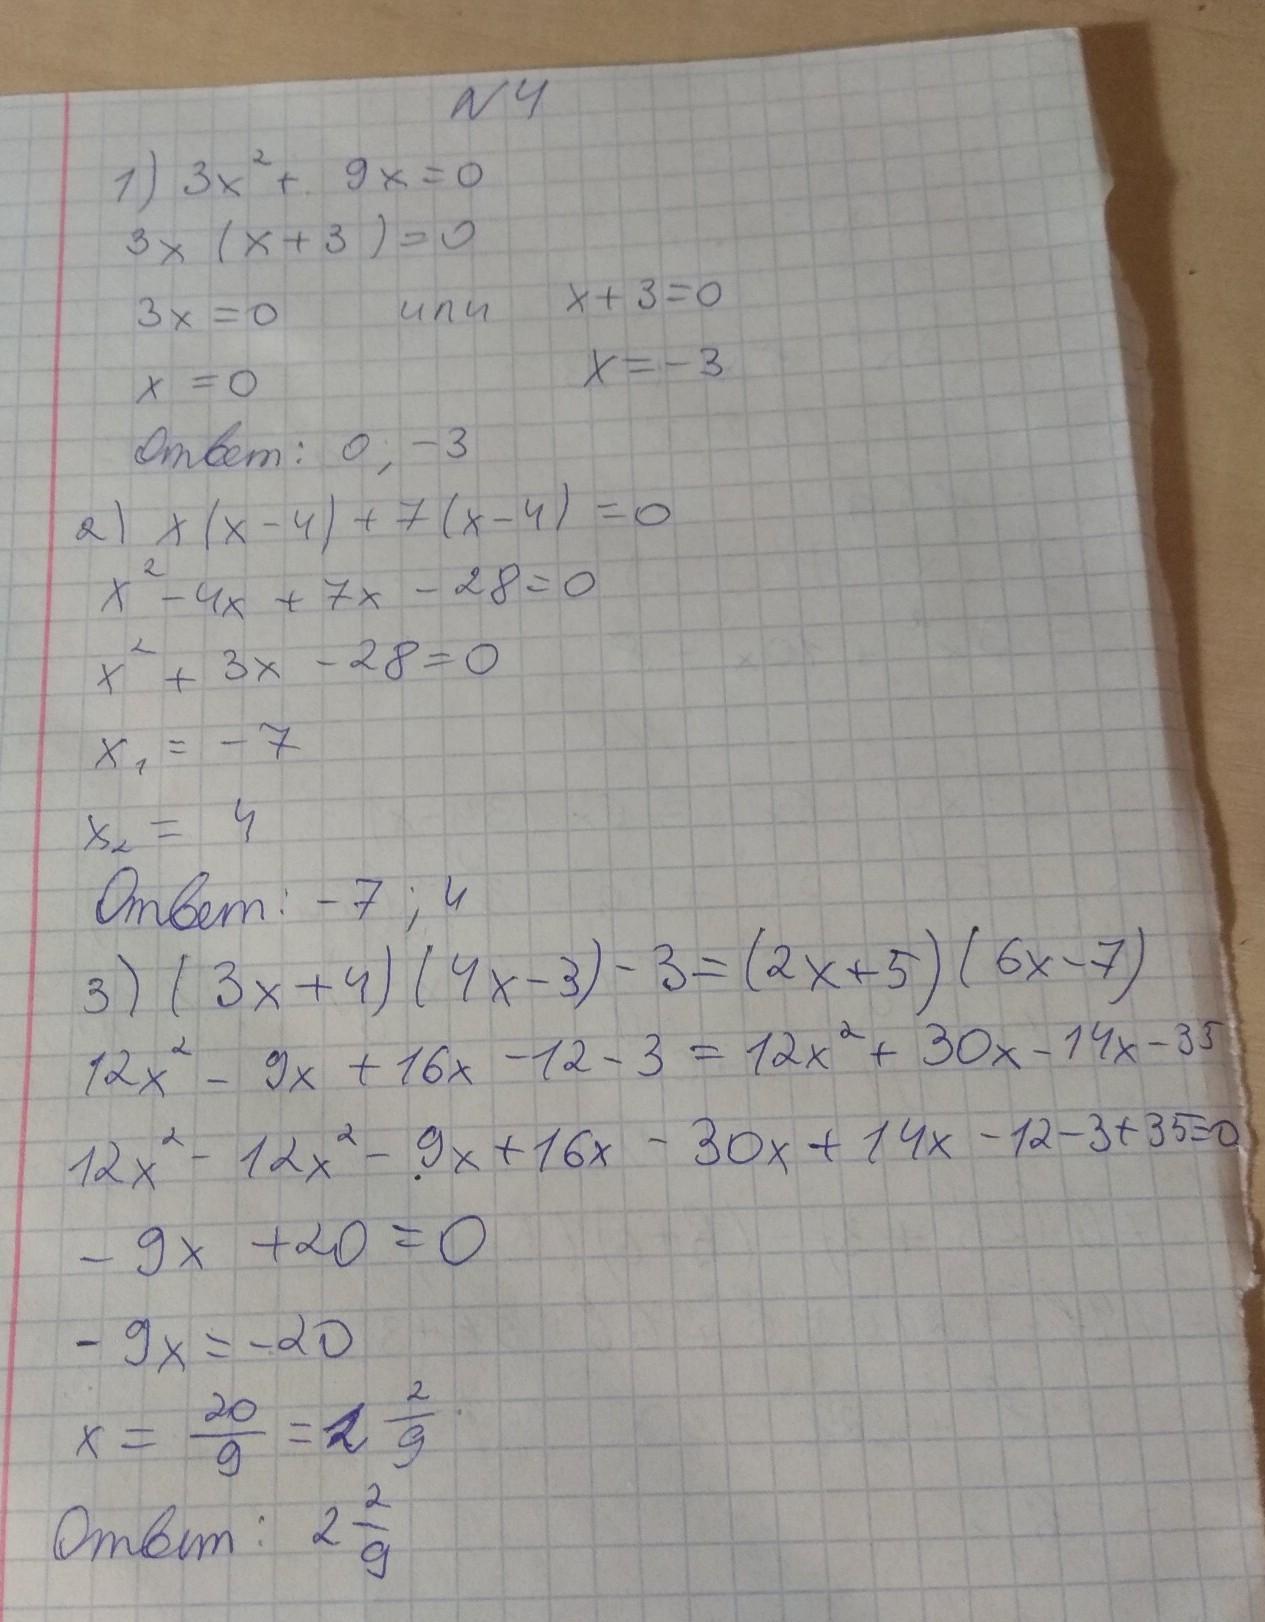 N4
1) 3x² + 9x = 0
3x (x + 3) = 0
3x = 0 или x + 3 = 0
x = 0 x = -3
Ответ: 0; -3
2) x(x - 4) + 7(x - 4) = 0
x² - 4x + 7x - 28 = 0
x² + 3x - 28 = 0
x₁ = -7
x₂ = 4
Ответ: -7; 4
3) (3x + 4)(4x - 3) - 3 = (2x + 5)(6x - 7)
12x² - 9x + 16x - 12 - 3 = 12x² + 30x - 14x - 35
12x² - 12x² - 9x + 16x - 30x + 14x - 12 - 3 + 35 = 0
-9x + 20 = 0
-9x = -20
x = 20/9 = 2 2/9
Ответ: 2 2/9